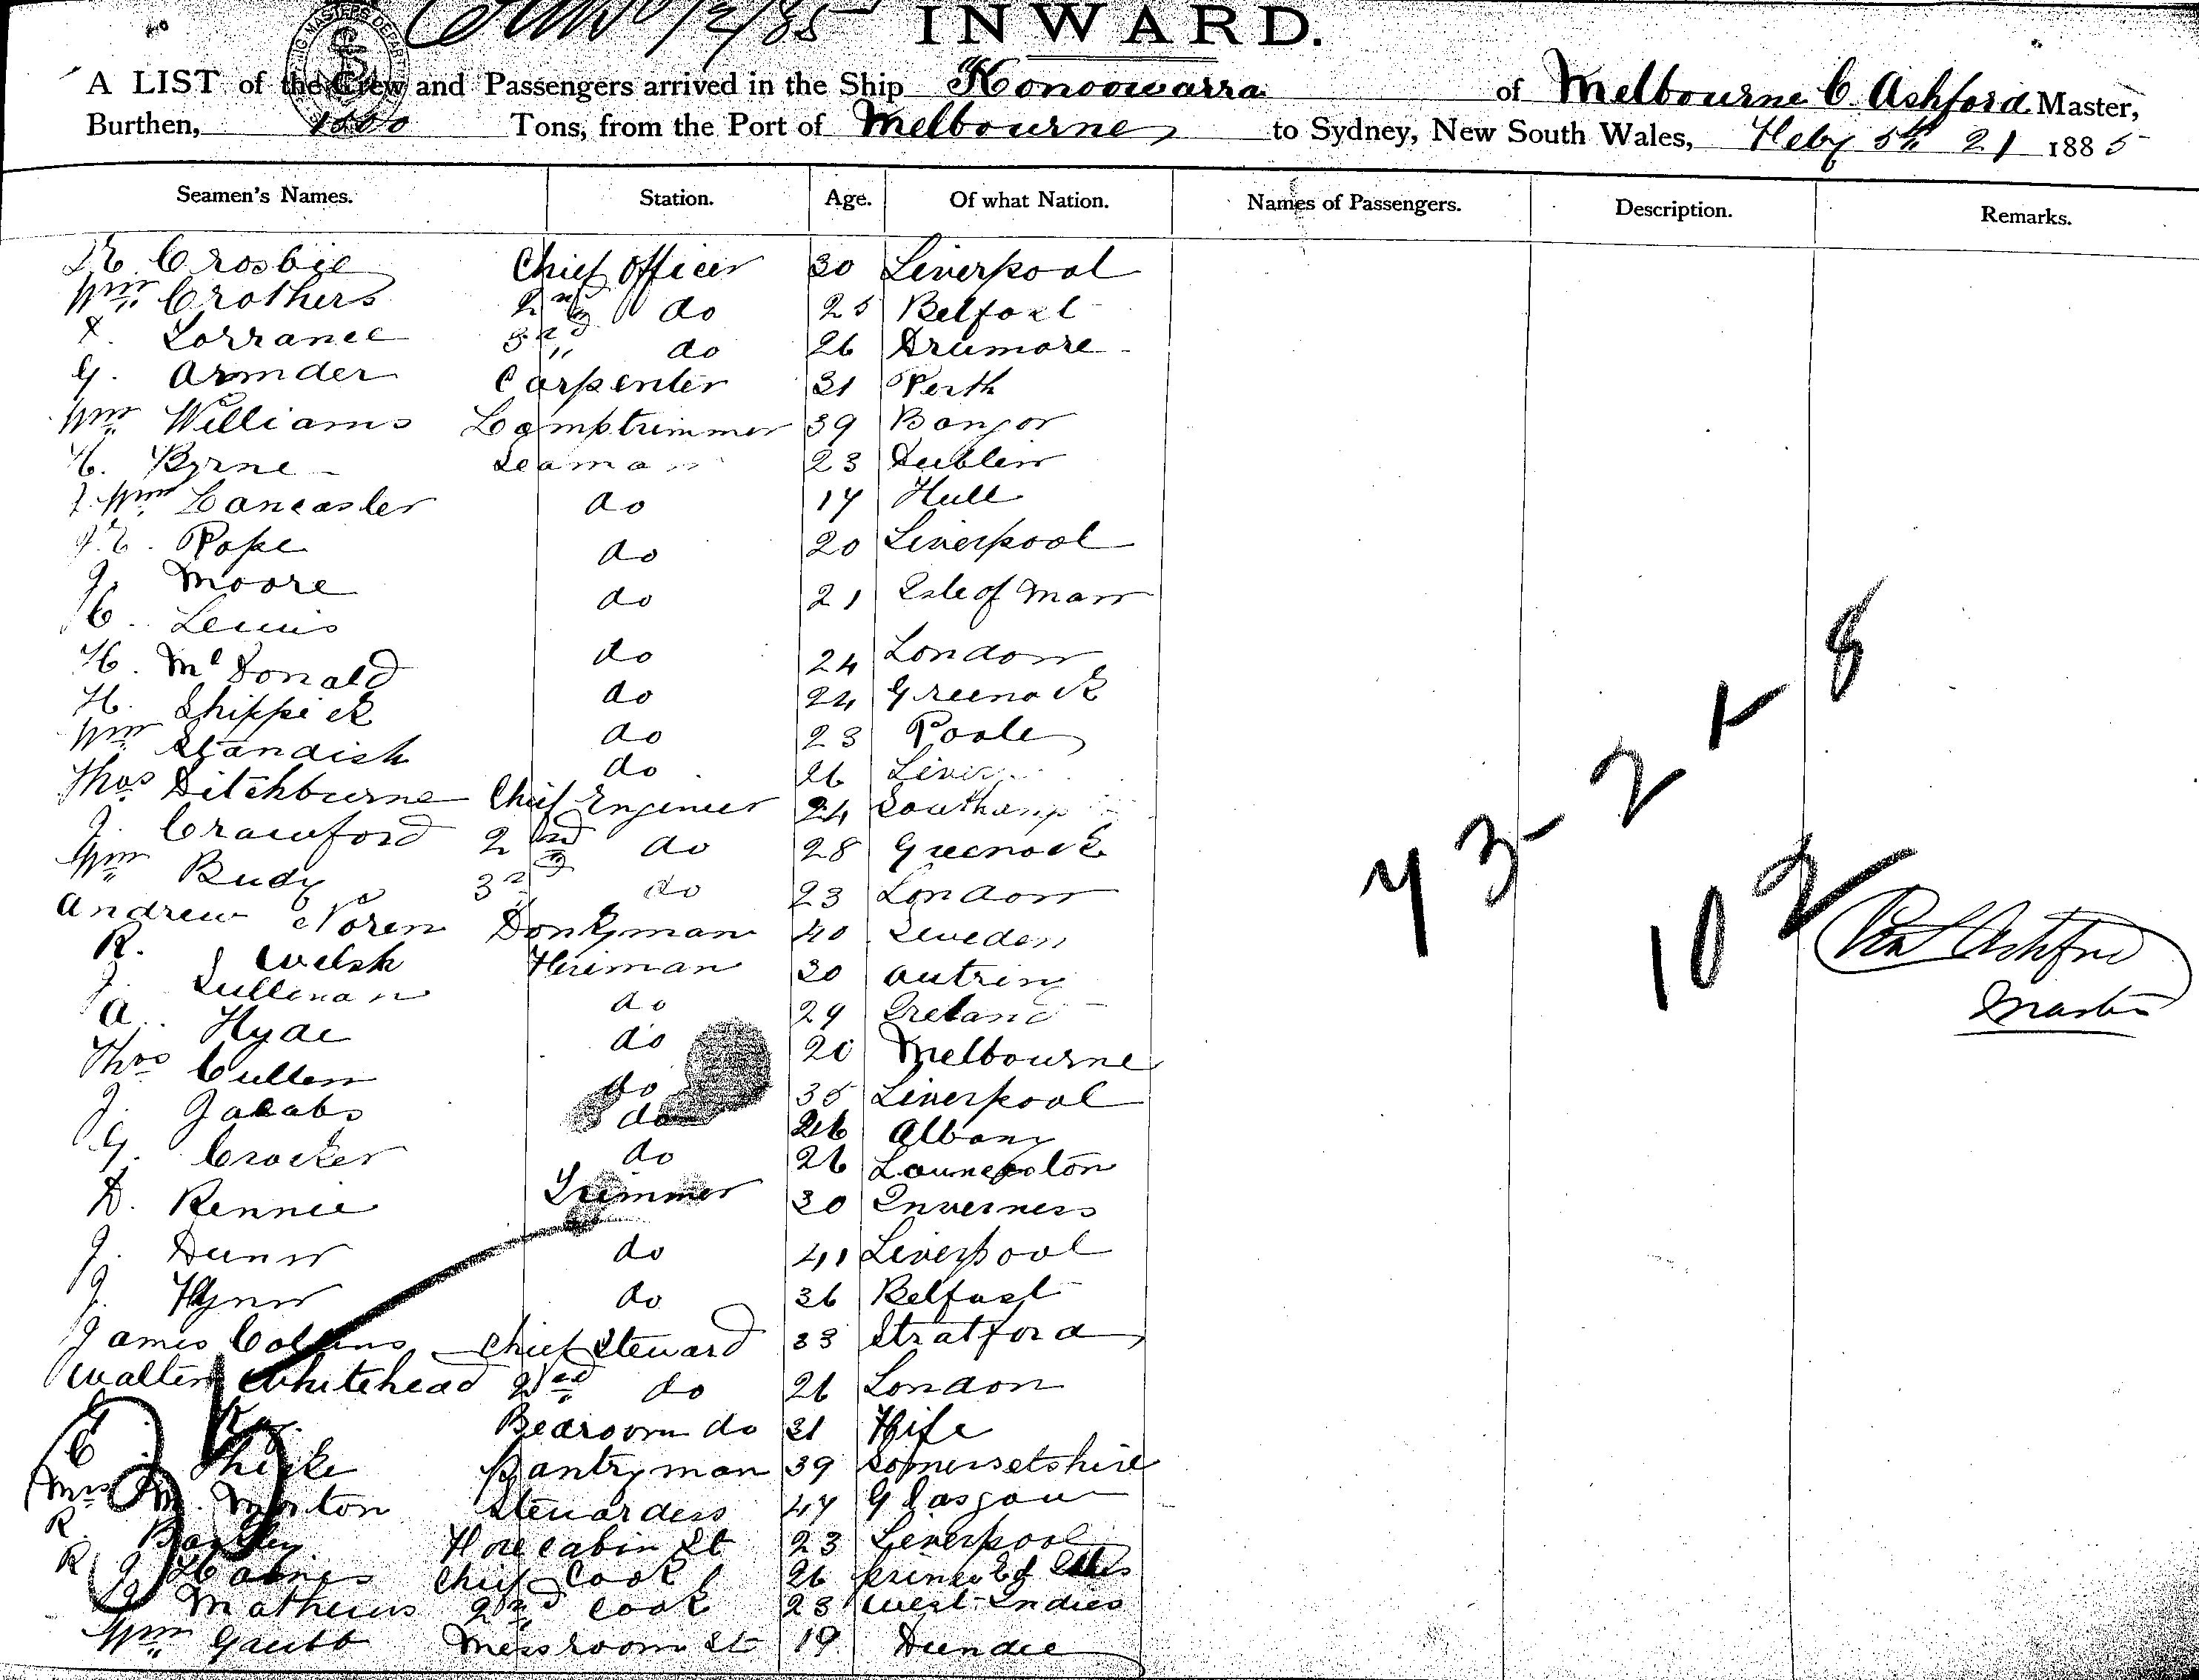 INWARD.
A LIST of the Crew and Passengers arrived in the Ship Konoowarra of Melbourne C Ashford Master,
Burthen, Tons, from the Port of Melbourne to Sydney, New South Wales, Feby 5th 21 1885
Seamen's Names. Station. Age. Of what Nation. Names of Passengers. Description. Remarks.
Crosbie Chief Officer 30 Liverpool
Wm Crothers 2nd do 25 Belfast
Lorrance 3rd do 26 Drumore
G. Armder Carpenter 31 Perth
Wm Williams Lamptrimmer 39 Bangor
H. Byrne Seaman 23 Dublin
Wm Lancaster do 17 Hull
Pope do 20 Liverpool
J. Moore do 21 Isle of Man
C. Lewis do 24 London
H. McDonald do 24 Greenock
H. Shippick do 23 Poole
Wm Standish do 26
Thos Ditchburne Chief Engineer 24
J. Crawford 2nd do 28 Greenock
Wm Budy 3rd do 23 London
Andrew Noren Donkyman 40 Sweden
R. Welsh Fireman 30
J. Sullivan do 29 Ireland
A. Hyde do 20 Melbourne
Thos Cullen do 35 Liverpool
J. Jacabs do 26 Albany
G. Crocker do 26 Launceston
D. Rennie Trimmer 30 Inverness
J. Dunn do 41 Liverpool
J. Flynn do 36 Belfast
James Collins Chief Steward 33 Stratford
Walter Whitehead 2nd do 26 London
Bedroom do 31 Fife
C. Pantryman 39 Somersetshire
Mrs M. Morton Stewardess 47 Glasgow
R. Forecabin St 23 Liverpool
R J Chief Cook 26
Mathews 2nd Cook 23 West Indies
Wm Messroom St 19 Dundee
102
Ashford
Master
35